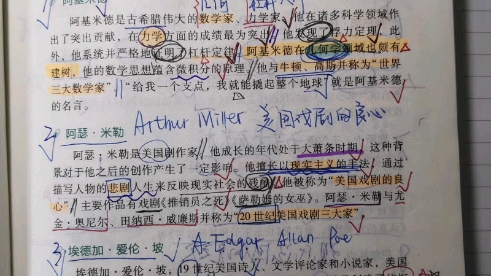 阿基米德
几何 杠杆
阿基米德是古希腊伟大的数学家、力学家，他在诸多科学领域作
出了突出贡献，在力学方面的成绩最为突出，他发现了浮力定理。此
外，他系统并严格地证明了杠杆定律。阿基米德在几何学领域也颇有
建树，他的数学思想蕴含微积分的原理，他与牛顿、高斯并称为“世界
三大数学家”。“给我一个支点，我就能撬起整个地球”就是阿基米德
的名言。
阿瑟·米勒 Arthur Miller 美国戏剧的良心
阿瑟·米勒是美国剧作家，他成长的年代处于大萧条时期，这种背
景对于他之后的创作产生了一定影响。他擅长以现实主义的手法，通过
描写人物的悲剧人生来反映现实社会的残酷，他被称为“美国戏剧的良
心”。主要作品有戏剧《推销员之死》《萨勒姆的女巫》。阿瑟·米勒与尤
金·奥尼尔、田纳西·威廉斯并称为“20世纪美国戏剧三大家”。
3) 埃德加·爱伦·坡 A. Edgar Allan Poe
埃德加·爱伦·坡，19世纪美国诗人、文学评论家和小说家，美国